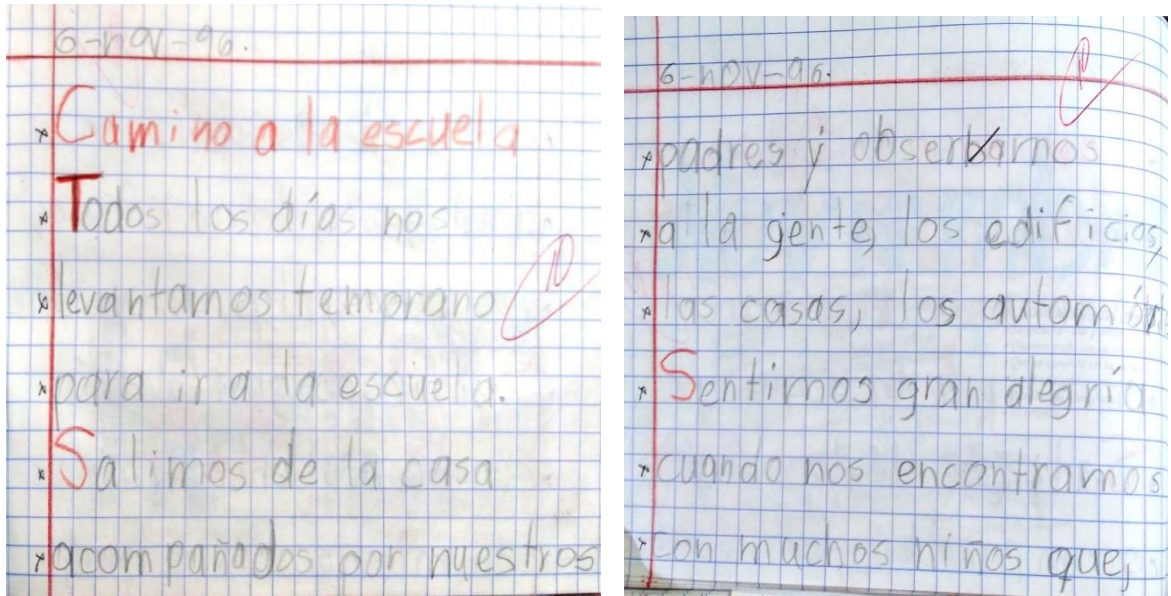 6-nov-96.
Camino a la escuela
Todos los días nos
levantamos temprano
10
para ir a la escuela.
Salimos de la casa
acompañados por nuestros
6-nov-96.
10
padres y observamos
a la gente, los edificios,
las casas, los automóv
Sentimos gran alegría
cuando nos encontramos
con muchos niños que,